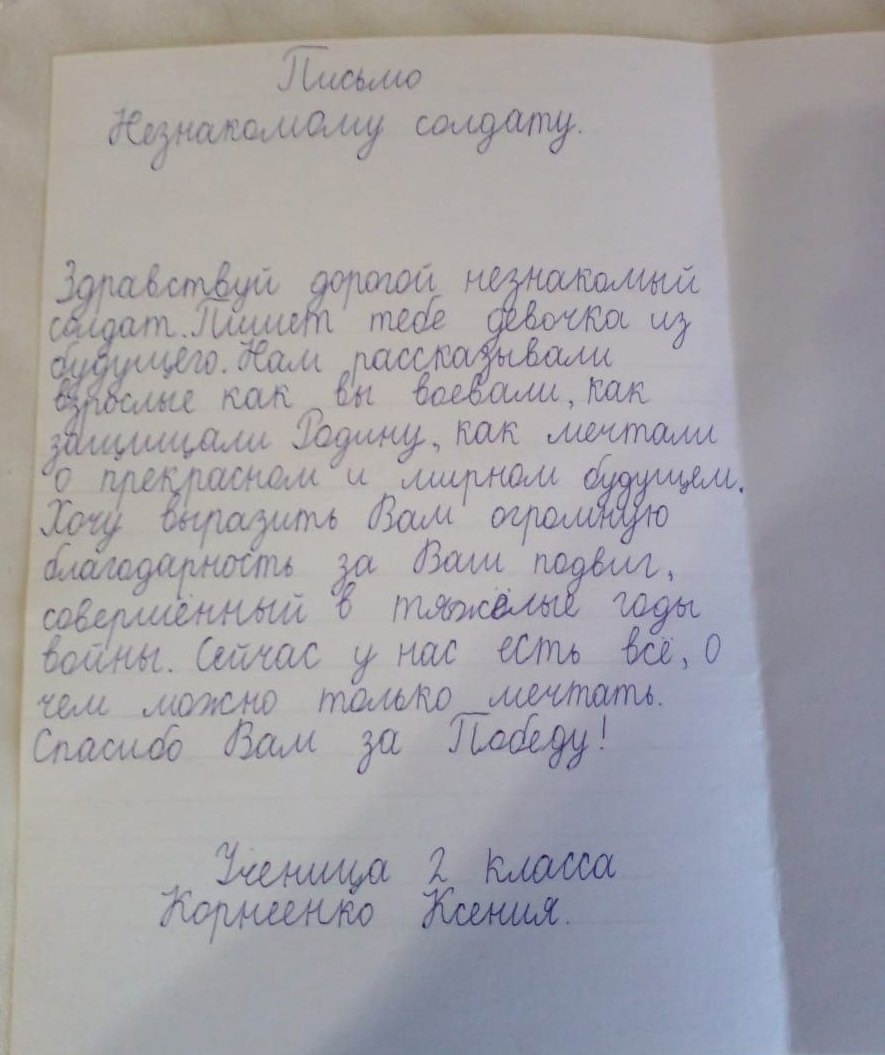 Письмо
Незнакомому солдату.
Здравствуй дорогой незнакомый
солдат. Пишет тебе девочка из
будущего. Нам рассказывали
взрослые как вы воевали, как
защищали Родину, как мечтали
о прекрасном и мирном будущем.
Хочу выразить Вам огромную
благодарность за Ваш подвиг,
совершённый в тяжёлые годы
войны. Сейчас у нас есть всё, О
чем можно только мечтать.
Спасибо Вам за Победу!
Ученица 2 класса
Корнеенко Ксения.